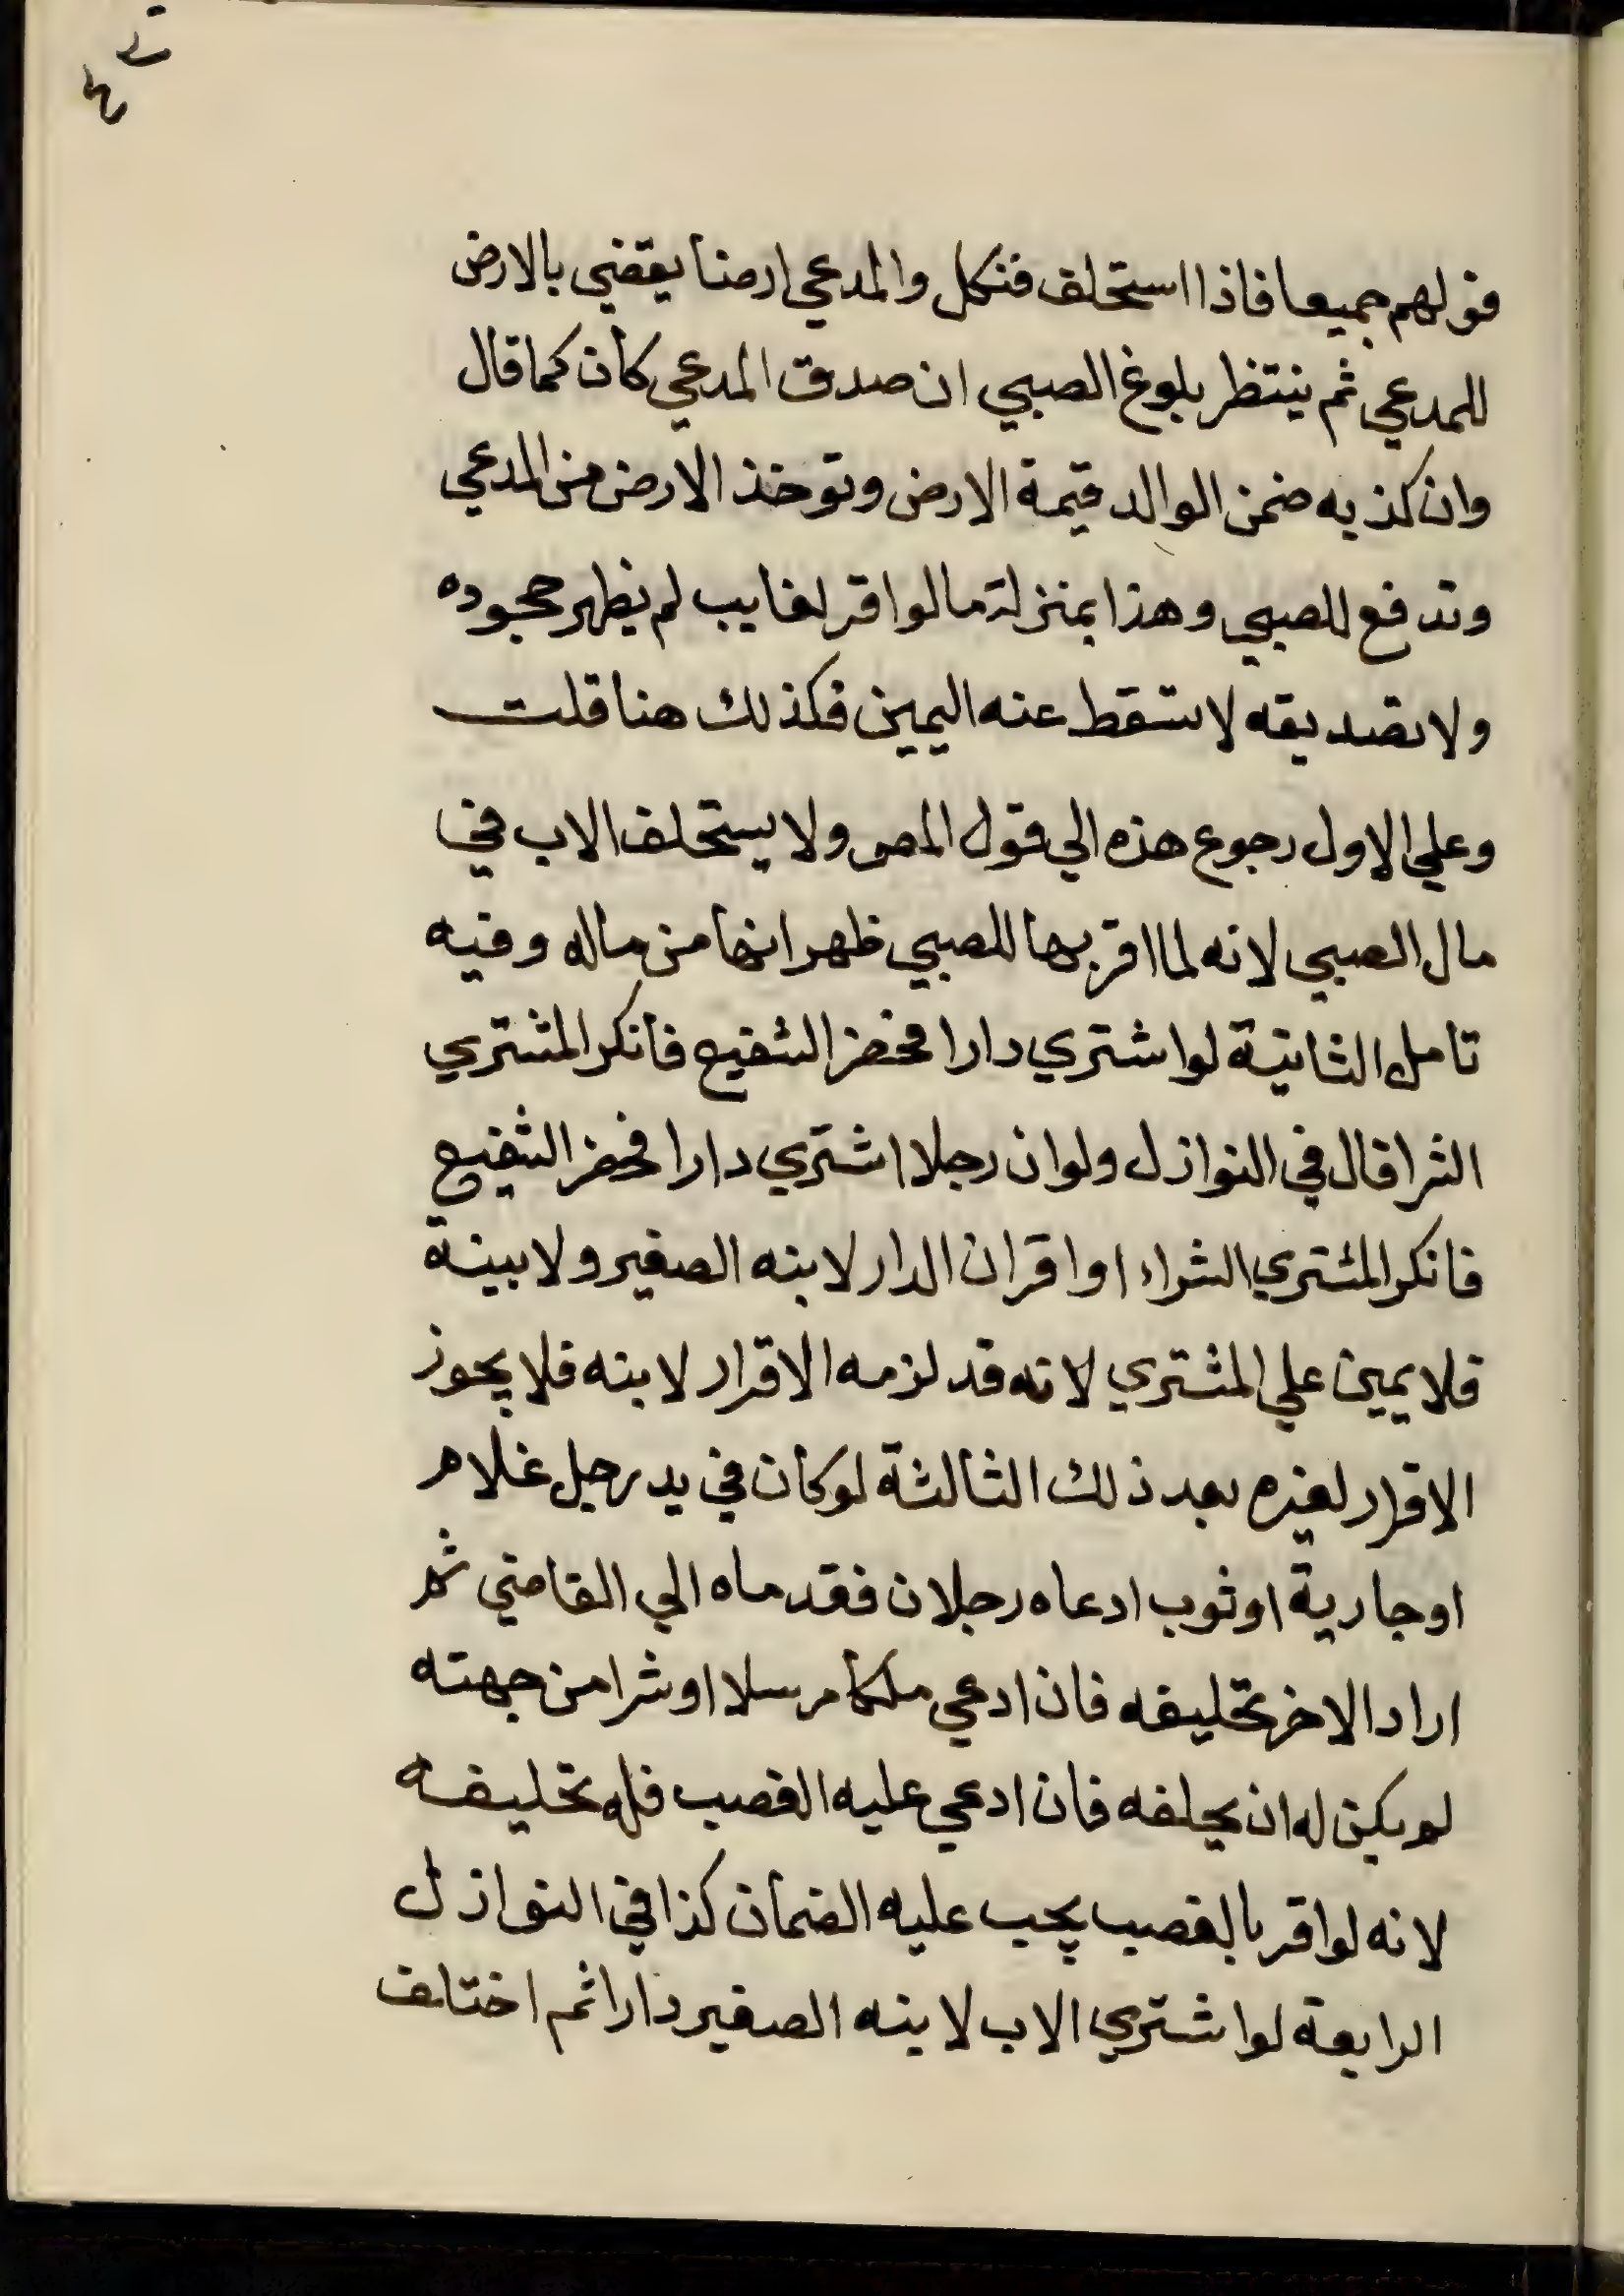 قولهم جميعا فاذا استحلف فنكل والمدعي ارضا يقضي بالارض
للمدعي ثم ينتظر بلوغ الصبي ان صدق المدعي كان كما قال
وان كذبه ضمن الوالد قيمة الارض وتوخذ الارض من المدعي
وتدفع للصبي وهذا بمنزلة ما لو اقر لغايب لم يظهر جحوده
ولا تصديقه لا تسقط عنه اليمين فكذلك هنا قلت
وعلي الاول رجوع هذه الي قول المص ولا يستحلف الاب في
مال الصبي لانه لما اقر بها للصبي ظهر انها من ماله وفيه
تامل الثانية لو اشتري دارا فحضر الشفيع فانكر المشتري
الشرا قال في النوازل ولو ان رجلا اشتري دارا فحضر الشفيع
فانكر المشتري الشراء او اقر ان الدار لابنه الصغير ولا بينة
فلا يمين علي المشتري لانه قد لزمه الاقرار لابنه فلا يجوز
الاقرار لغيره بعد ذلك الثالثة لو كان في يد رجل غلام
او جارية او ثوب ادعاه رجلان فقدماه الي القاضي ثم
اراد الاخر تحليفه فان ادعي ملكا مرسلا او شرا من جهته
لم يكن له ان يحلفه فان ادعي عليه الغصب فله تحليفه
لانه لو اقر بالغصب يجب عليه الضمان كذا في النوازل
الرابعة لو اشتري الاب لابنه الصغير دارا ثم اختلف